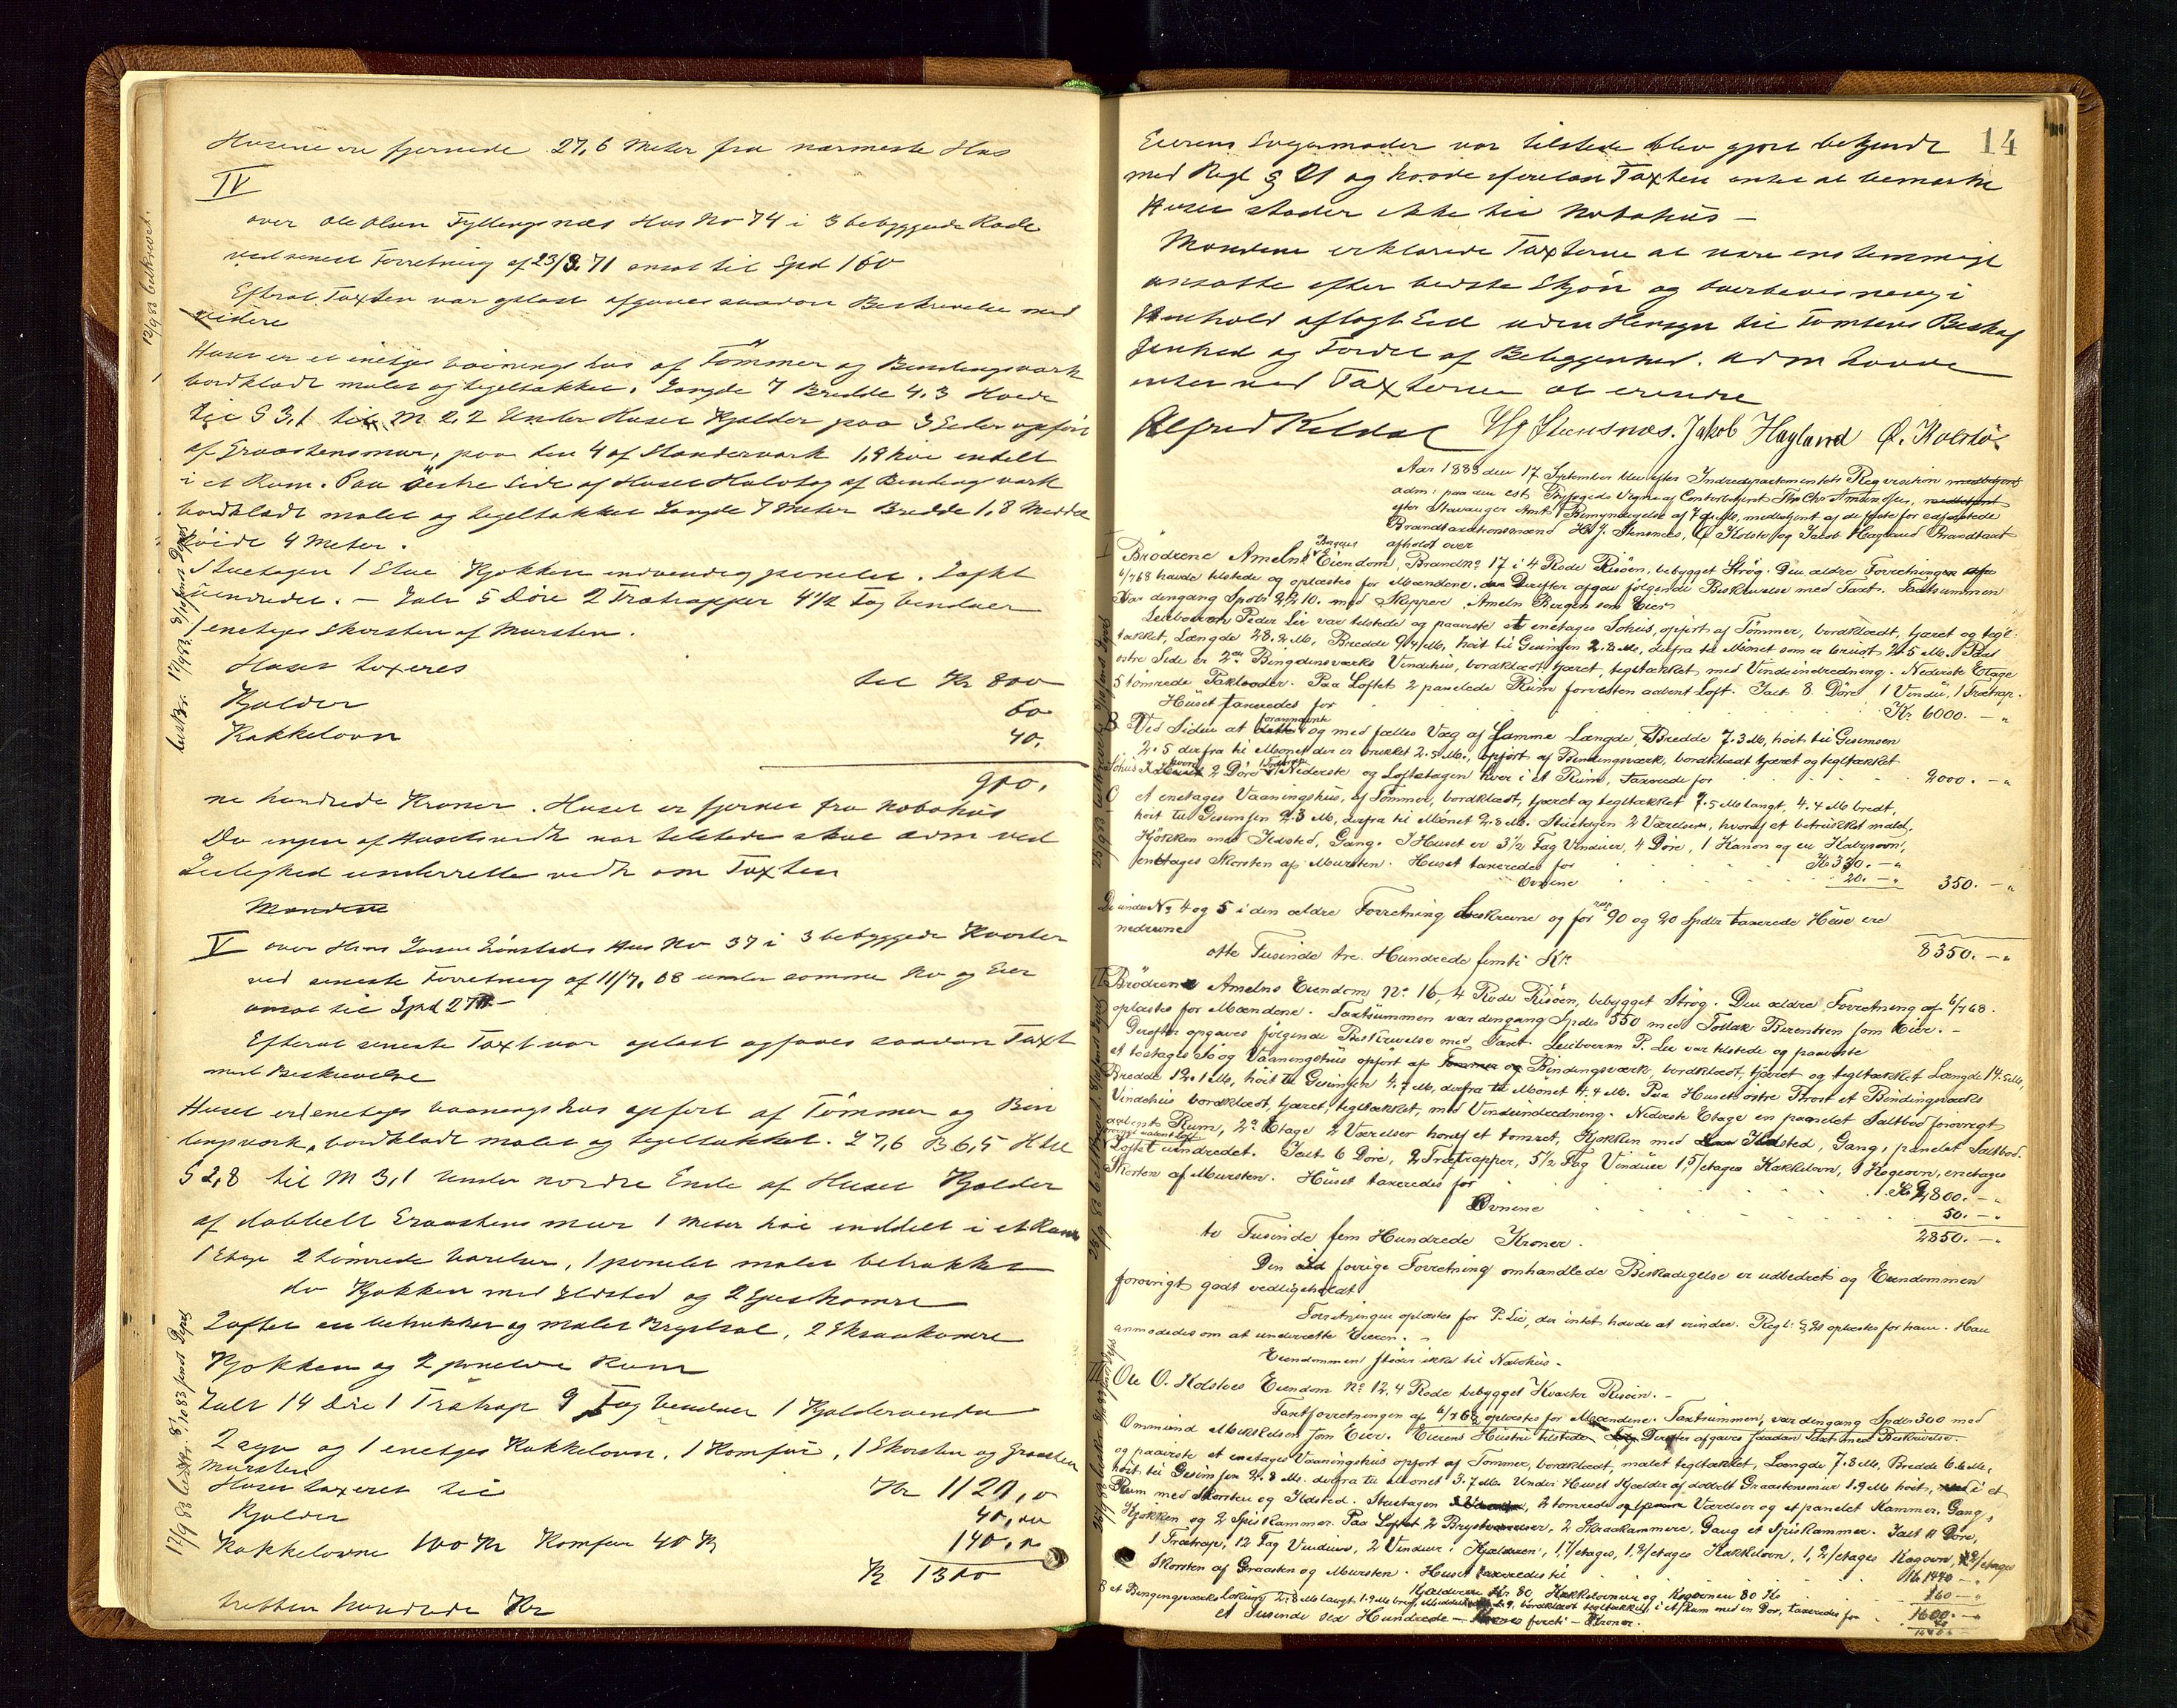 Husene ere fjernede 27,6 Meter fra nærmeste Hus
IV
over Ole Olsen Fyllingsnæs Hus No 74 i 3 bebyggede Rode
ved senest Forretning af 23/8.71 ansat til Spd 160
Efterat Taxten var oplæst afgaves saadan Beskrivelse med
videre
Huset er et enetages vaaningshus af Tømmer og Bindingsværk
bordklædt malet og tegeltækket. Længde 7 Bredde 4.3 Høide
til G 3,1 til M 2,2 Under Huset Kjelder paa 3 Sider opført
af Graastensmur, paa den 4 af Standerværk 1,9 høi indelt
i et Rum. Paa østre Side af Huset Halvtag af Bindingsværk
bordklædt malet og tegeltækket Længde 7 Meter Bredde 1,8 Middel
høide 4 Meter.
I Stuetagen 1 Stue Kjøkken indvendig panelet. Loftet
uindredet. — Ialt 5 Døre 2 Trætrapper 4 1/2 Fag Vinduer
1 enetages Skorsten af Mursten.
Huset taxeres til Kr 800
Kjelder 60
Kakkelovn 40.
900.
ni hundrede Kroner. Huset er fjernet fra Nabohus
Da ingen af Husets vedk var tilstede skal adm ved
Leilighed underrette vedk om Taxten
Mændene
V over Hans Larsen Lønstads Hus No 37 i 3 bebyggede Kvarter
ved seneste Forretning af 11/7.68 under samme No og Eier
ansat til Spd 270.—
Efterat seneste Taxt var oplæst afgaves saadan Taxt
med Beskrivelse
Huset er 1 enetages vaaningshus opført af Tømmer og Bin
dingsværk, bordklædt malet og tegeltækket. L 7,6 B 6,5 H til
G 2,8 til M 3,1 under nordre Ende af Huset Kjelder
af dobbelt Graastensmur 1 Meter høi inddelt i et Rum
1 Etage 2 tømrede Værelser, 1 panelet malet betrukket
do Kjøkken med Ildsted og 2 Spiskamre
Loftet en betrukket og malet Brystsal, 2 Skraakamre
Kjøkken og 2 panelede Rum
Ialt 14 Døre 1 Trætrap 9 Fag Vinduer 1 Kjeldervindu
2 og 1 enetages Kakkelovn, 1 Komfur, 1 Skorsten og Graasten
Mursten
Huset taxeret til Kr 1120,0
Kjelder 40,00
Kakkelovne 100 Kr Komfur 40 Kr 140,0
Kr 1300
tretten hundrede Kr
14
Eierens Svigermoder var tilstede blev gjort bekjendt
med Regl § 21 og havde oplæst Taxten intet at bemærke
Huset støder ikke til Nabohus —
Mændene erklærede Taxterne at være enstemmigt
ansatte efter bedste Skjøn og Overbevisning i
Henhold aflagt Eed uden Hensyn til Tomtens Beskaf
fenhed og Fordel af Beliggenhed. Adm havde
intet ved Taxterne at erindre
Alfred Keldal Hg Steensnæs. Jakob Hagland Ø. Kolstø.
Aar 1883 den 17 September blev efter Indredepartementets Reqvisition medbetjent
adm: paa den cst Byfogeds Vegne af Contorbetjent Th. Chr Amundsen, medbetjent
efter Stavanger Amts Bemyndigelse af 7 ds, medbetjent af de faste for edfæstede
Brandtaxationsmænd H. J. Stensnæs, Ø Kolstø og Jakob Hagland Brandtaxt
afholdt over
I Brødrene Amelns Bergens Eiendom, Brandno. 17 i 4 Rode Risøen, bebygget Strøg. Den ældre Forretning af
6/7 68 havde tilstede og oplæstes for Mændene. Derefter afgav følgende Beskrivelse med Taxt. Taxtsummen
var dengang Spdr 2210. med Skipper Ameln Bergen som Eier.
Leieboeren Peder Lie var tilstede og paaviste et enetages Søhus, opført af Tømmer, bordklædt, tjæret og tegl:
tækket, Længde 28.2 M, Bredde 9.4 M, høit til Gesimsen 2.8 M, derfra til Mønet som er brudt 2.5 M. Paa
østre Side er 2de Bingdensværks Vindehus, bordklædt, tjæret, tegltækket med Vindeindredning. Nederste Etage
5 tømrede Pakboder. Paa Loftet 2 panelede Rum forresten aabent Loft. Ialt 8 Døre 1 Vindu, 1 Trætrap.
Huset taxeredes for Kr. 6000. — "
B Ved Siden af forannævnte og med fælles Væg af samme Længde, Bredde 7.3 M, høit til Gesimsen
2.5 derfra til Mønet der er brukket 2.5 M., opført af Bindingsværk, bordklædt tjæret og tegltækket
Søhus 2 Døre. Nederste og Loftetagen hver i et Rum, taxeredes for 2000. — "
C et enetages Vaaningshus, af Tømmer, bordklædt, tjæret og tegltækket 7.5 M langt, 4.4 M bredt,
høit til Gesimsen 2.3 M, derfra til Mønet 2.8 M. Stuetagen 2 Værelser, hvoraf et betrukket malet,
Kjøkken med Ildsted, Gang. I Huset er 3 1/2 Fag Vinduer, 4 Døre, 1 Kanon og en Kabysovn,
enetages Skorsten af Mursten. Huset taxeredes for Kr 330. — "
Ovnene 20. — " 350. — "
De under No. 4 og 5 i den ældre Forretning beskrevne og for resp 90 og 20 Spdlr taxerede Huse ere
nedrevne
8350. — "
otte Tusinde tre Hundrede femti Kr.
II Brødrene Amelns Eiendom No. 16, 4 Rode Risøen, bebygget Strøg. Den ældre Forretning af 6/7 68.
oplæstes for Mændene. Taxtsummen var dengang Spdlr 550 med Tollak Berentsen som Eier. —
Derefter opgaves følgende Beskrivelse med Taxt. Leieboeren P. Lie var tilstede og paaviste
et toetages Sø og Vaaningshus opført af Tømmer og Bindingsværk, bordklædt, tjæret og tegltækket Længde 14.5 M,
Bredde 12.1 M, høit til Gesimsen 4.7 M, derfra til Mønet 4.4 M. Paa Husets østre Front et Bindingsværks
Vindehus bordklædt, tjæret, tegltækket, med Vindeindredning. Nederste Etage en panelet Saltbod forøvrigt
aabent Rum, 2den Etage 2 Værelser hvoraf et tømret, Kjøkken med Ildsted, Gang, panelet Saltbod.
Loftet uindredet. Ialt 6 Døre, 2 Trætrapper, 5 1/2 Fag Vinduer 1,5/etages Kakkelovn, 1 Kogeovn, enetages
Skorsten af Mursten. Huset taxeredes for Kr 2,800. — "
Ovnene 50. — "
2850. — "
to Tusinde fem Hundrede Kroner.
Den i forrige Forretning omhandlede Beskadigelse er udbedret og Eiendommen
forøvrigt godt vedligeholdt
Forretningen oplæstes for P. Lie, der intet havde at erindre. Regl: § 21 oplæstes for ham. Han
anmodedes om at underrette Eieren. "
Eiendommen støder ikke til Nabohus. —
III Ole O. Kolstøes Eiendom No. 12, 4 Rode bebygget Kvarter Risøen. —
Taxtforretningen af 6/7 68 oplæstes for Mændene. Taxtsummen, var dengang Spdlr 300 med
Ommund Mikkelsen som Eier. Eierens Hustru tilstede. Derefter afgaves saadan Taxt med Beskrivelse.
og paaviste et enetages Vaaningshus opført af Tømmer, bordklædt, malet tegltækket, Længde 7.8 M, Bredde 6.6 M,
høit til Gesimsen 2.8 M. derfra til Mønet 3.7 M. Under Huset Kjælder af dobbelt Graastensmur 1.9 M høit, i et
Rum med Skorsten og Ildsted. Stuetagen 2 tømrede Værelser og et panelet Kammer, Gang,
Kjøkken og 2 Spiskammer. Paa Loftet 2 Brystværelser, 2 Skraakammere, Gang et Spiskammer. Ialt 11 Døre,
1 Trætrap, 12 Fag Vinduer, 2 Vinduer i Kjælderen, 1,7/etages, 1,2/etages Kakkelovn, 1, 2/etages Kogovn, 2/etages
Skorsten af Graasten og Mursten. Huset taxeredes til Kr 1440 — "
Kjælderen Kr 80, Kakkelovnene og Kogovnen 80 Kr 160 — "
B et Bingingsværks Lokum 2.8 M langt 1.9 M bredt, Middelhøide 2.9, bordklædt tegltækket, i et Rum med en Dør, taxeredes for
1600. — "
et Tusinde sex Hundrede — fireti — Kroner.